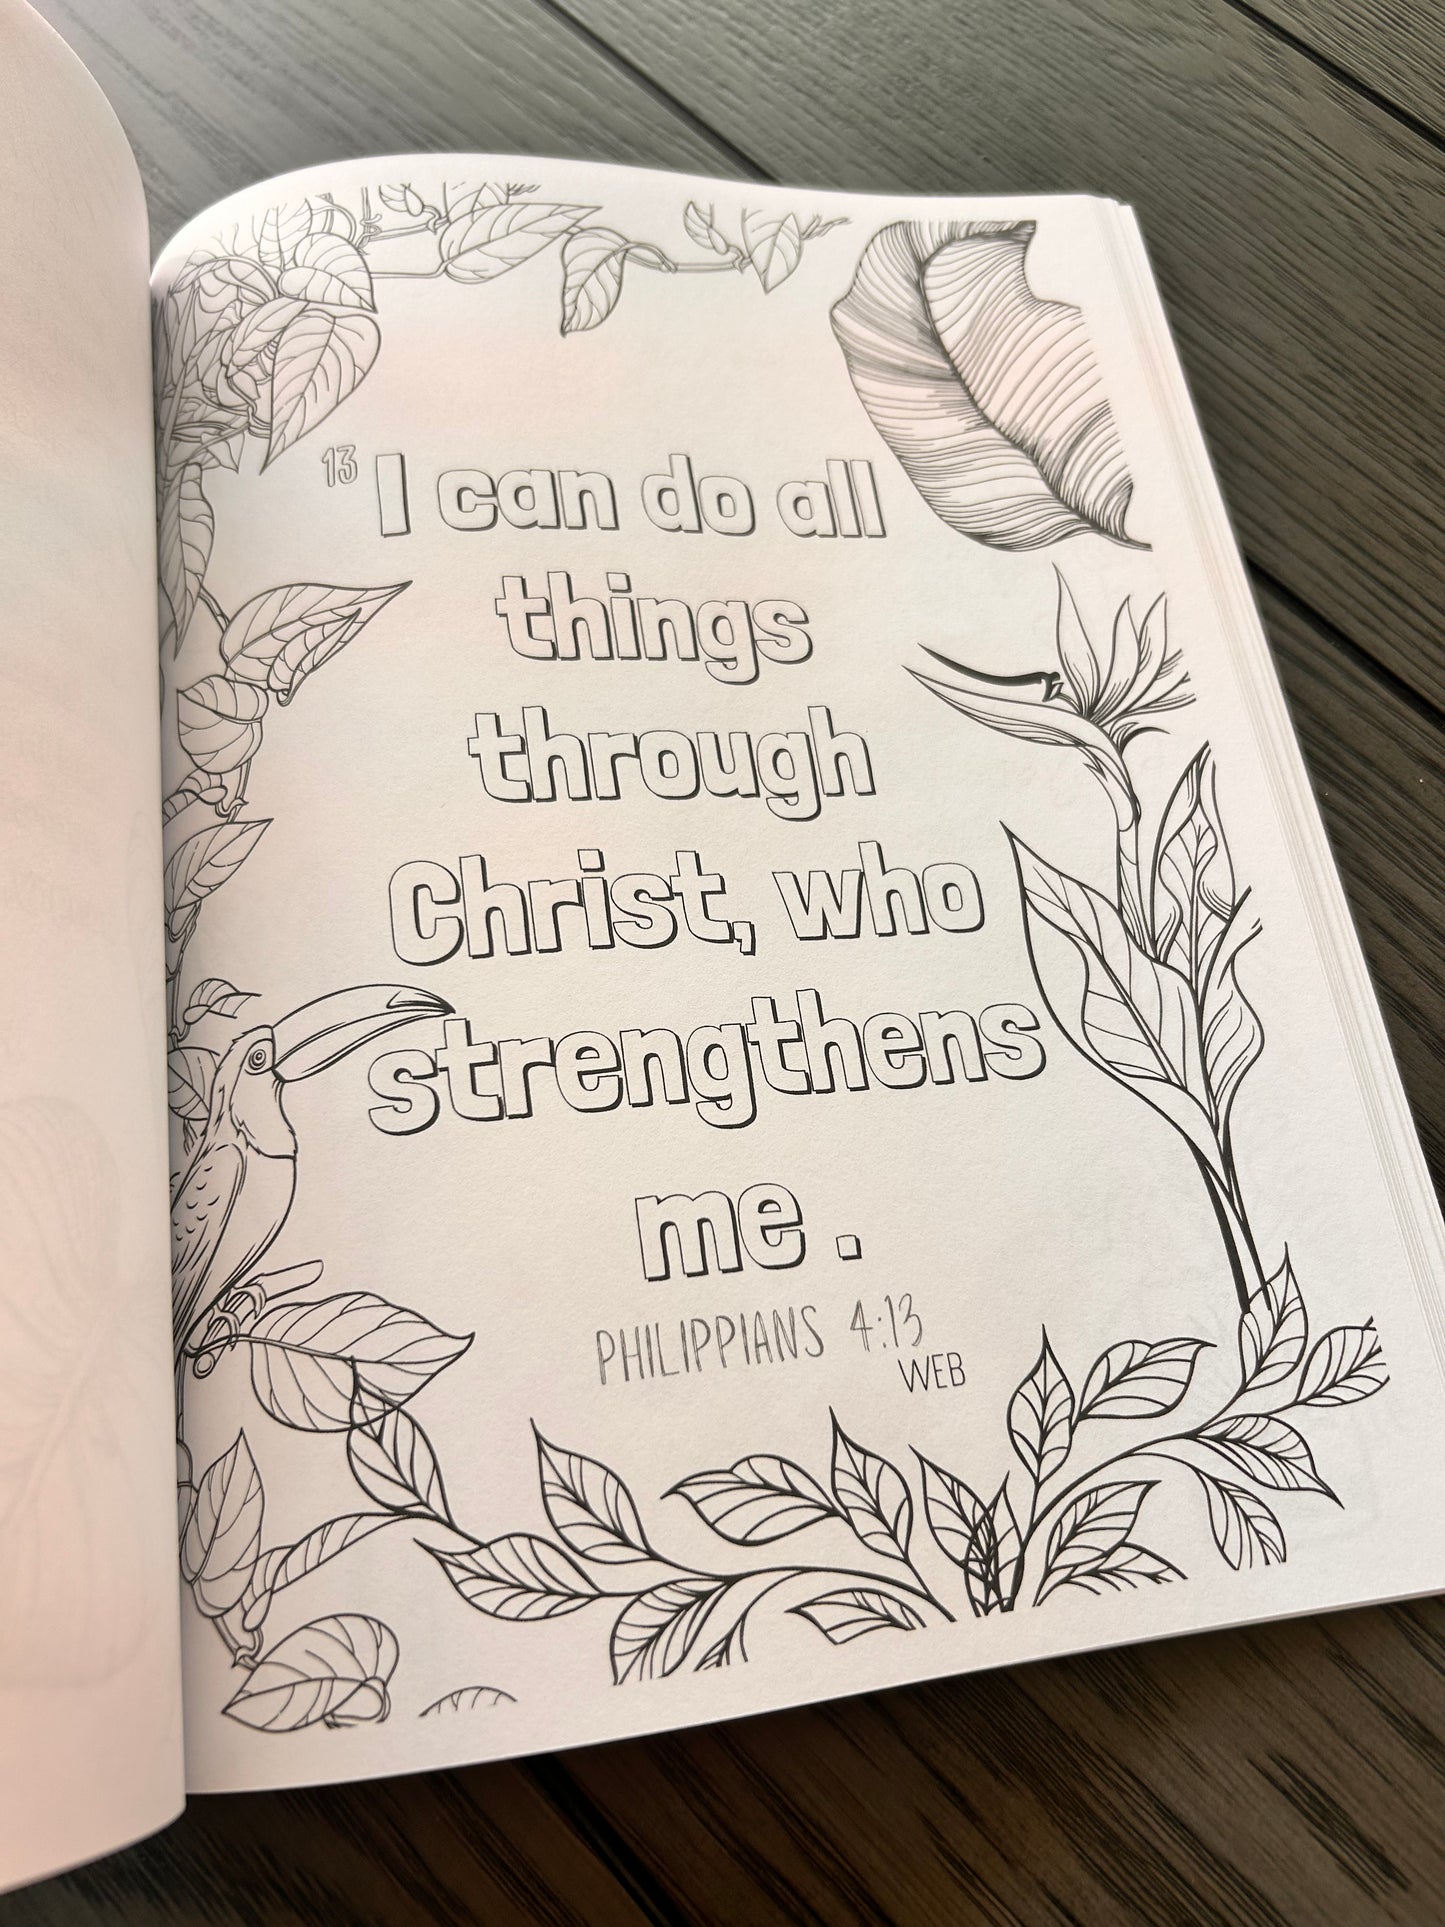 13 I can do all
things
through
Christ, who
strengthens
me .
PHILIPPIANS 4:13
WEB